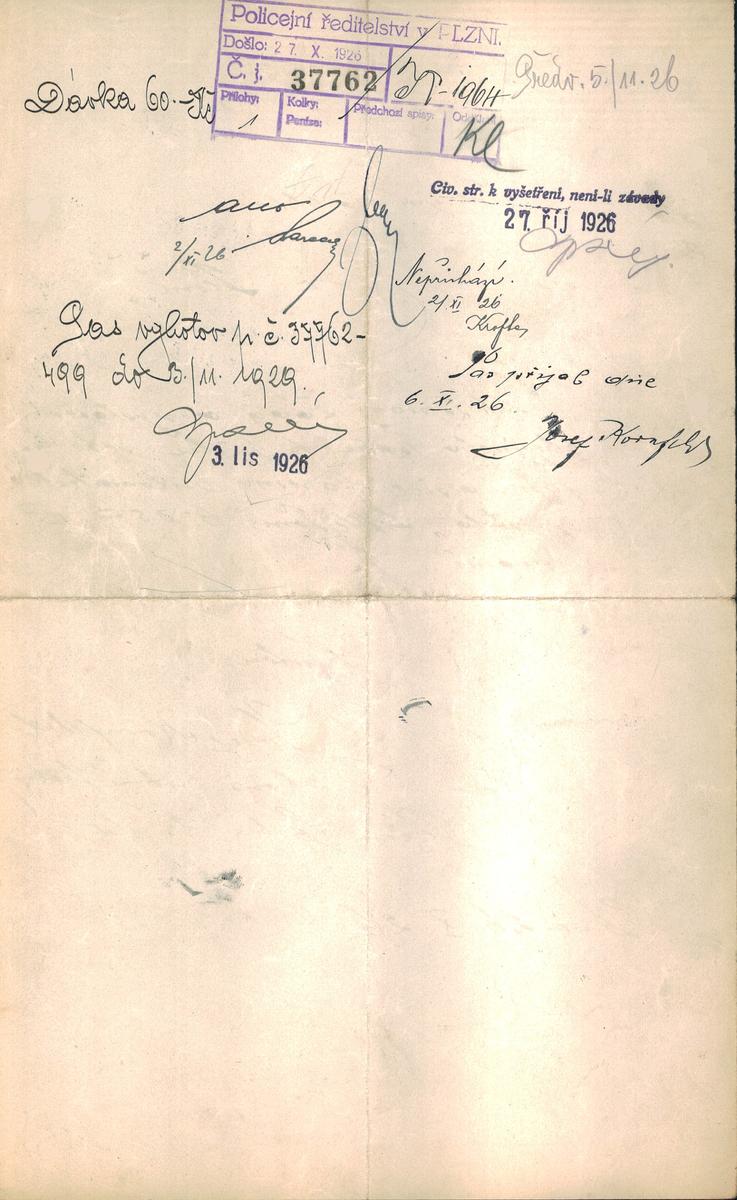 Policejní ředitelství v PLZNI.
Došlo: 27. X. 1926
Č. j. 37762
Přílohy: 1
Kolky:
Peníze:
Předchozí spisy:
Kl
Dávka 60.-Kč
Předv. 5./11.26
Civ. str. k vyšetření, není-li závady
27. říj 1926
ano
2/XI 26
Nepřichází.
2/XI 26
Pas vyhotov p. č. 37762-
499 do 3./11. 1929.
3. lis 1926
Pas přijal dne
6. XI. 26.
Josef